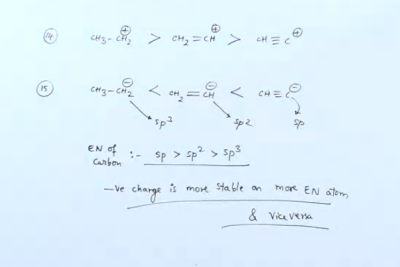 14 CH3-CH2⊕ > CH2=CH⊕ > CH≡C⊕
15 CH3-CH2⊖ < CH2=CH⊖ < CH≡C⊖
sp3 sp2 sp
EN of carbon :- sp > sp2 > sp3
-ve charge is more stable on more EN atom
& vice versa